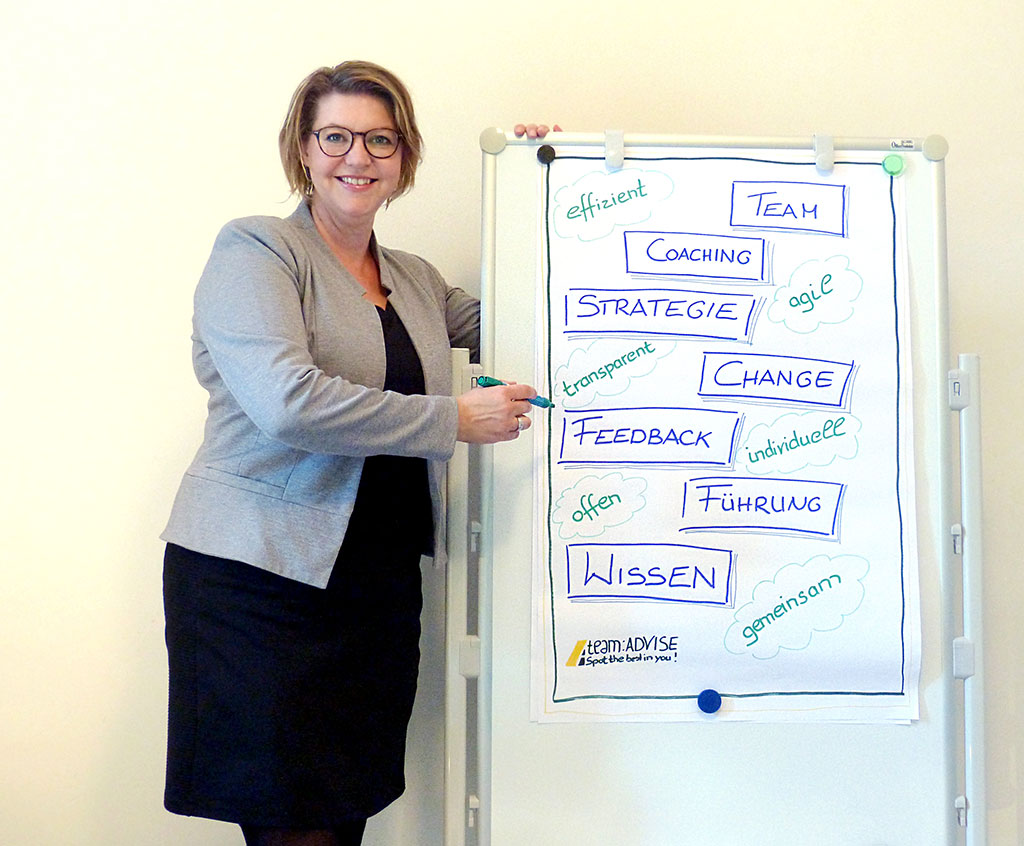 effizient
TEAM
COACHING
agil
STRATEGIE
transparent
CHANGE
FEEDBACK
individuell
offen
FÜHRUNG
WISSEN
gemeinsam
team:ADVISE
Spot the best in you!